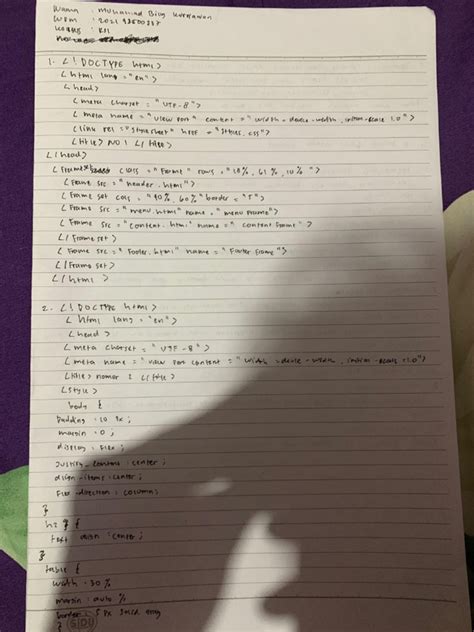 Nama : Muhamad Bisy Kurniawan
NPM : 202143500357
Kelas : R51
1. < ! DOCTYPE html >
< html lang = "en" >
< head >
< meta charset = "UTF-8" >
< meta name = "view port" content = "width = device-width, initial-scale 1.0" >
< link rel = "stylesheet" href = "styles.css" >
< title > NO 1 < / title >
< / head >
< frameset class = "Frame" rows = "18%, 61%, 10%" >
< Frame src = "header.html" >
< Frame set cols = "40%, 60%" border = "5" >
< Frame src = "menu.html" name = "menu Frame" >
< Frame src = "content.html" name = "content Frame" >
< / Frame set >
< Frame src = "Footer.html" name = "Footer Frame" >
< / Frame set >
< / html >
2. < ! DOCTYPE html >
< html lang = "en" >
< head >
< meta charset = "UTF-8" >
< meta name = "view Port content = "width = device-width, initial-scale = 1.0" >
< title > nomor 2 < / title >
< style >
body {
Padding : 10 Px ;
margin : 0 ;
display : Flex ;
Justify - content : center ;
align - items : center ;
Flex - direction : column ;
}
h2 {
text align : center ;
}
table {
width : 50 %
margin : auto %
border : 5 px solid